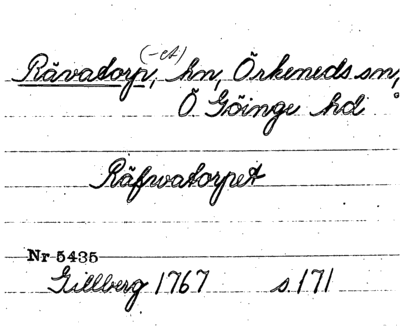 (-et)
Rävatorp, hn, Örkeneds sn,
Ö Göinge hd
Räfwatorpet
Nr 5435
Gillberg 1767 s 171